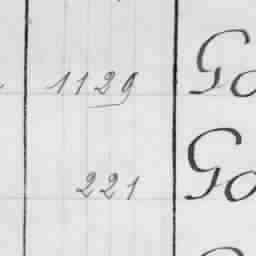 1129 Go
221 Go